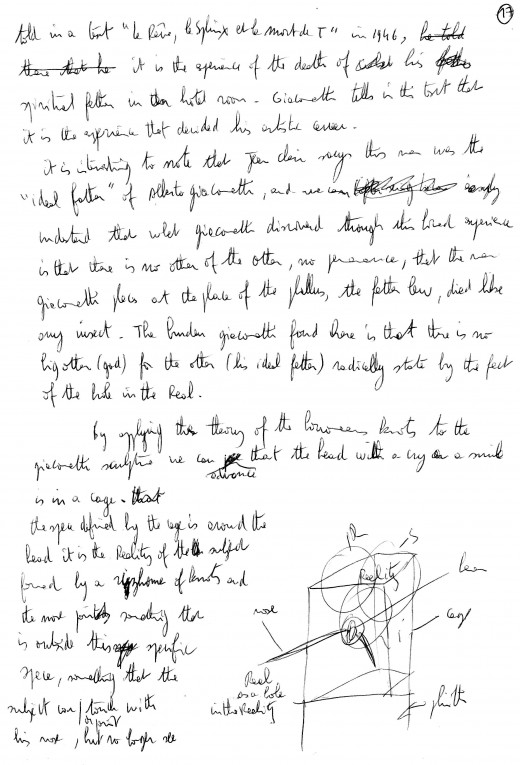 17
told in a text "le Rêve, le Sphinx et la mort de T" in 1946, he told
there that he it is the experience of the death of his
spiritual father in the hotel room. Giacometti tells in this text that
it is the experience that decided his artistic career.
it is interesting to note that Jean Clair says this man was the
"ideal father" of Alberto Giacometti, and we can simply
understand that what giacometti discovered through this lived experience
is that there is no other of the other, no permanence, that the man
giacometti places at the place of the phallus, the father law, died like
any insect. The burden giacometti found there is that there is no
big other (god) for the other (his ideal father) radically state by the fact
of the hole in the Real.
By applying this theory of the borromean knots to the
giacometti sculpture we can advance that the head with a cry or a smile
is in a cage. that
the space defined by the cage is around the
head it is the Reality of the subject
formed by a of knots and
the nose points something that
is outside this specific
space, something that the
subject can/touch with
or point
his nose, but no longer see
R
S
Reality
i
nose
cage
plinth
Real
as a hole
in the Reality